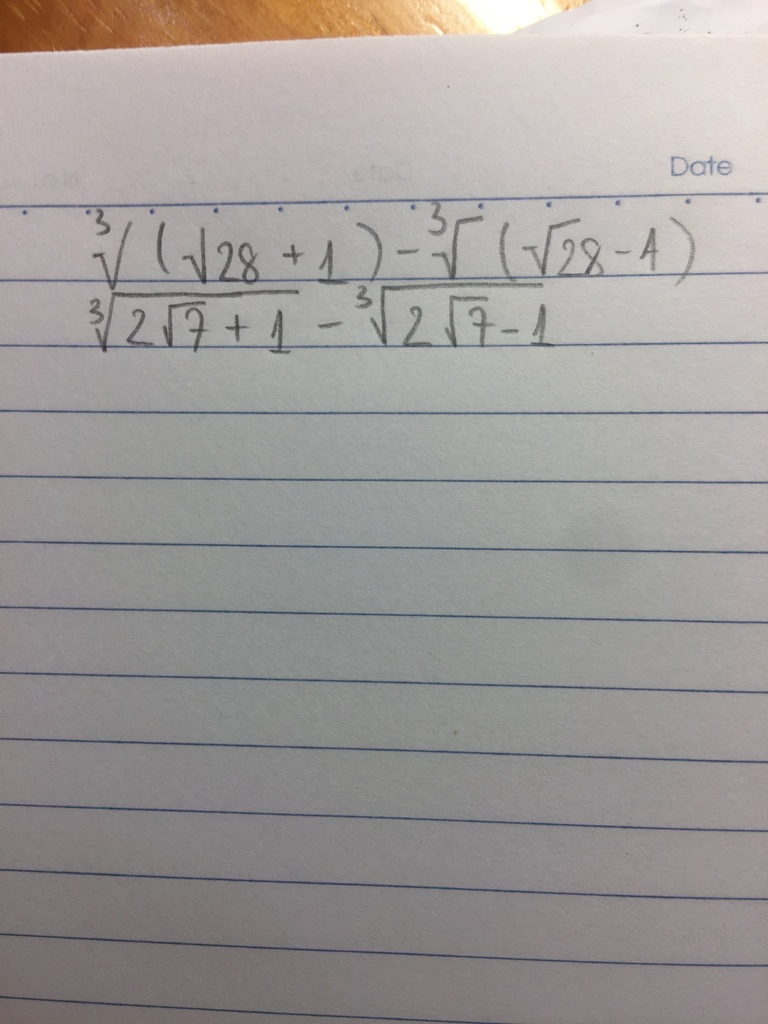 Date
∛(√28 + 1) - ∛(√28 - 1)
∛(2√7 + 1) - ∛(2√7 - 1)